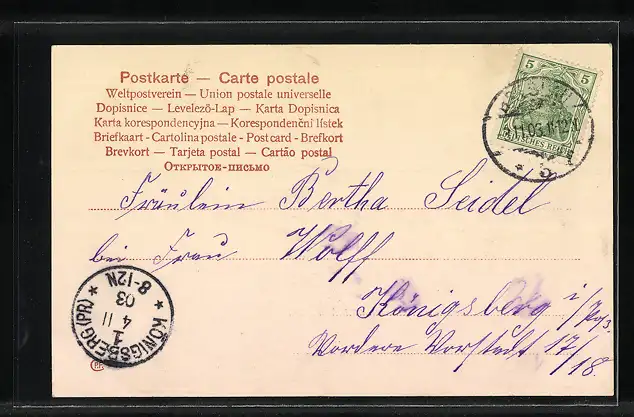 Postkarte — Carte postale
Weltpostverein — Union postale universelle
Dopisnice — Levelező-Lap — Karta Dopisnica
Karta korespondencyjna — Korespondenční lístek
Briefkaart - Cartolina postale - Post card - Brefkort
Brevkort — Tarjeta postal — Cartão postal
Открытое-письмо
5 5
11.03.11-12
DEUTSCHES REICH
Fräulein Bertha Seidel
bei Frau Wolff
Königsberg i/
Vordere Vorstadt 17/18.
KÖNIGSBERG (PR)
1
4 11
03
8-12N